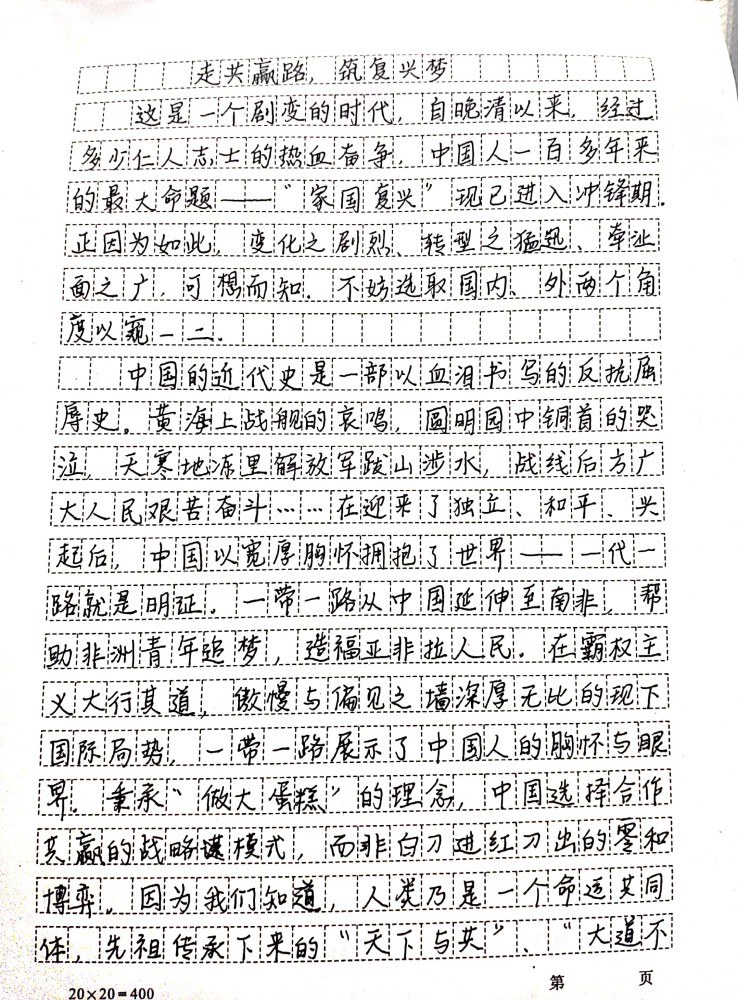 走共赢路，筑复兴梦
这是一个剧变的时代，自晚清以来，经过
多少仁人志士的热血奋争，中国人一百多年来
的最大命题——“家国复兴”现已进入冲锋期.
正因为如此，变化之剧烈、转型之猛迅、牵涉
面之广，可想而知.不妨选取国内、外两个角
度以窥一二.
中国的近代史是一部以血泪书写的反抗屈
辱史。黄海上战舰的哀鸣，圆明园中铜首的哭
泣，天寒地冻里解放军跋山涉水，战线后方广
大人民艰苦奋斗……在迎来了独立、和平、兴
起后，中国以宽厚胸怀拥抱了世界——一代一
路就是明证。一带一路从中国延伸至南非，帮
助非洲青年追梦，造福亚非拉人民。在霸权主
义大行其道，傲慢与偏见之墙深厚无比的现下
国际局势，一带一路展示了中国人的胸怀与眼
界。秉承“做大蛋糕”的理念，中国选择合作
共赢的战略模式，而非白刀进红刀出的零和
博弈。因为我们知道，人类乃是一个命运共同
体，先祖传承下来的“天下与共”、“大道不
20×20=400
第 页